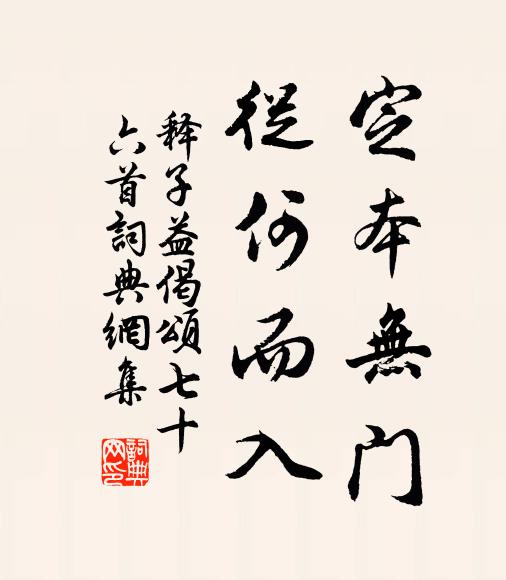 定本無門
從何而入
釋子益偈頌七十
六首詞典網集
詞典網印